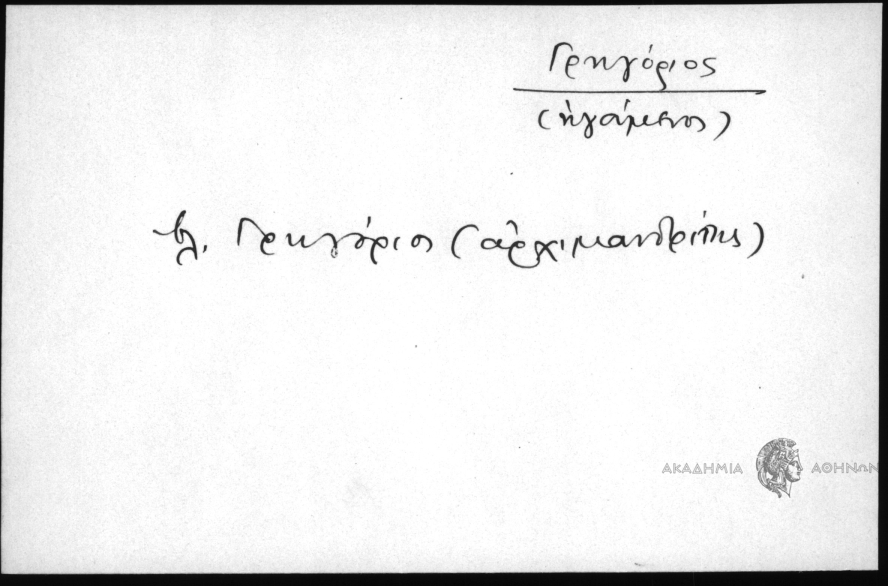 Γρηγόριος
(ἡγούμενος)
βλ. Γρηγόριος (ἀρχιμανδρίτης)
ΑΚΑΔΗΜΙΑ ΑΘΗΝΩΝ